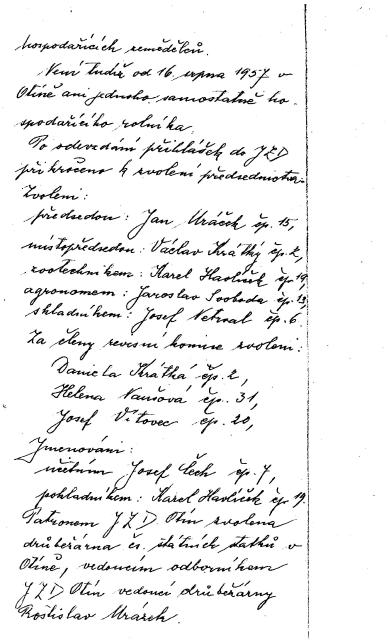 hospodařících zemědělců.
Není tudíž od 16. srpna 1957 v
Otíně ani jednoho samostatně ho-
spodařícího rolníka.
Po odevzdání přihlášek do JZD
přikročeno k zvolení představenstva.
Zvoleni:
předsedou: Jan Mráček čp. 15,
místopředsedou: Václav Krátký čp. 2,
zootechnikem: Karel Havlíček čp. 19,
agronomem: Jaroslav Svoboda čp. 13,
skladníkem: Josef Netval čp. 6.
Za členy revisní komise zvoleni:
Daniela Krátká čp. 2,
Helena Vaňsová čp. 31,
Josef Vítovec čp. 20,
Jmenováni:
účetním Josef Čech čp. 7,
pokladníkem: Karel Havlíček čp. 19.
Patronem JZD Otín zvolena
drůbežárna čs. státních statků v
Otíně, vedoucím odborníkem
JZD Otín vedoucí drůbežárny
Rostislav Mrázek.